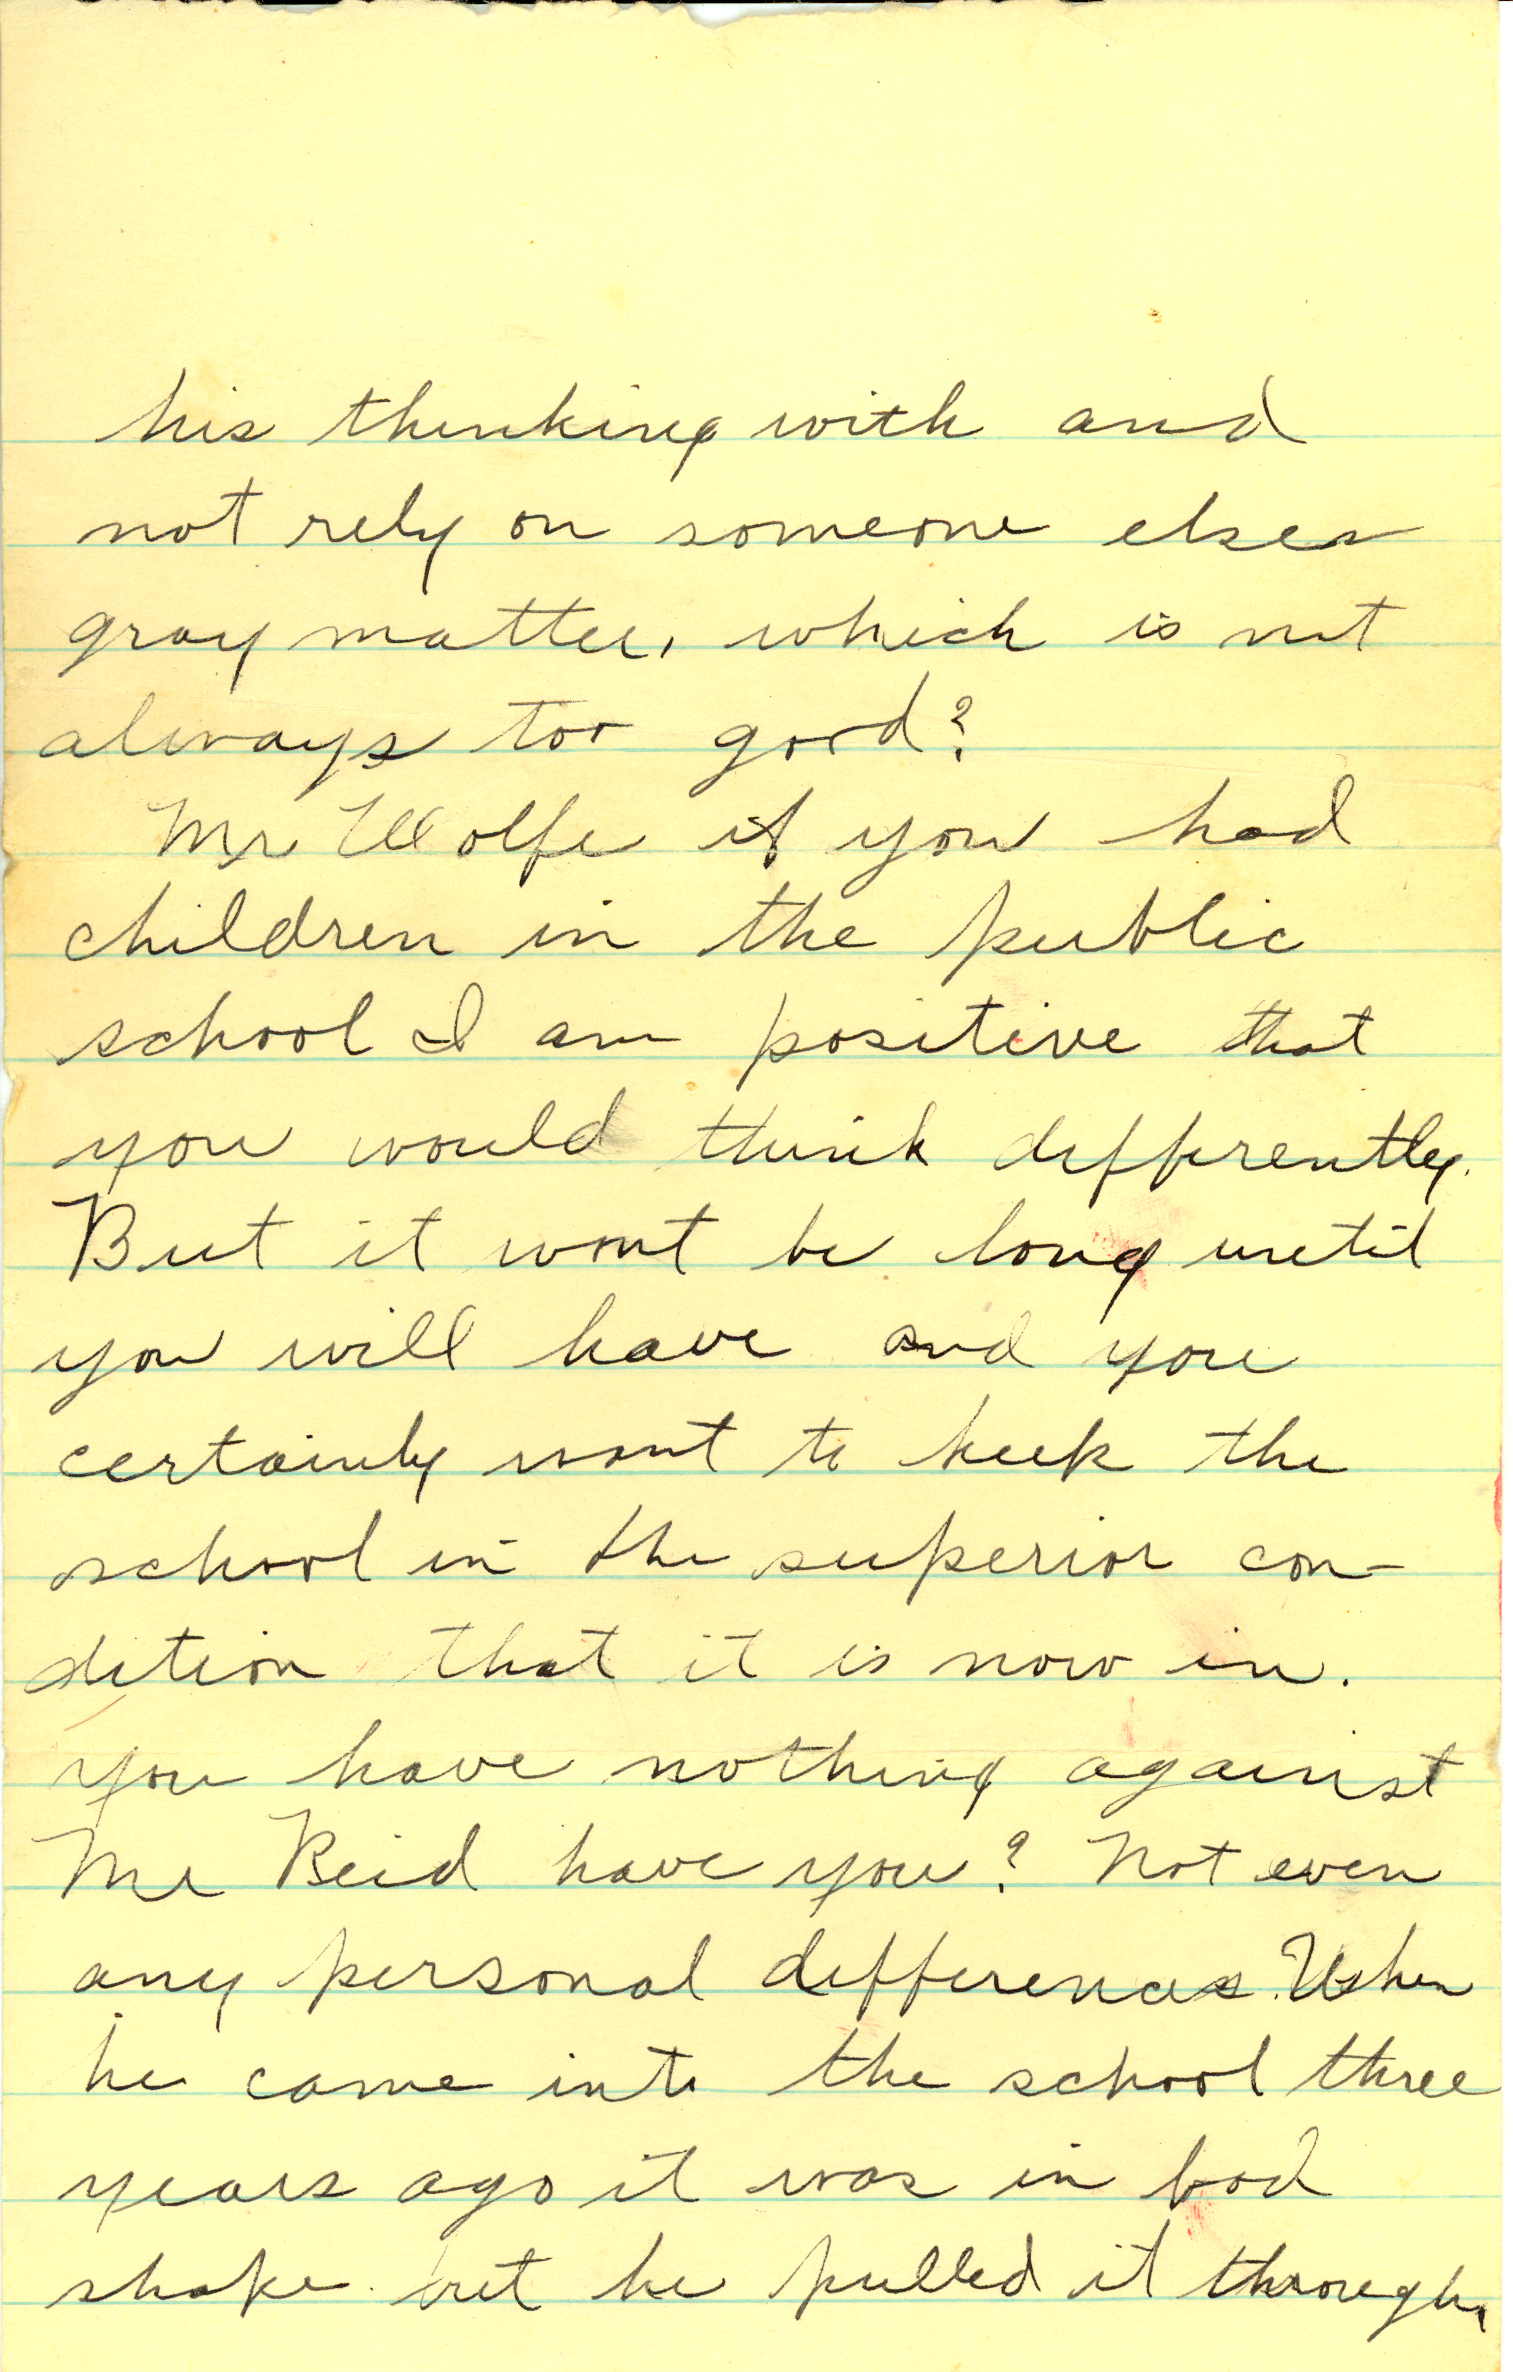 his thinking with and
not rely on someone elses
gray matter, which is not
always too good?
Mr Wolfe if you had
children in the public
school I am positive that
you would think differently.
But it wont be long until
you will have and you
certainly want to keep the
school in the superior con-
dition that it is now in.
You have nothing against
Mr Reid have you? Not even
any personal differences. When
he came into the school three
years ago it was in bad
shape but he pulled it through,